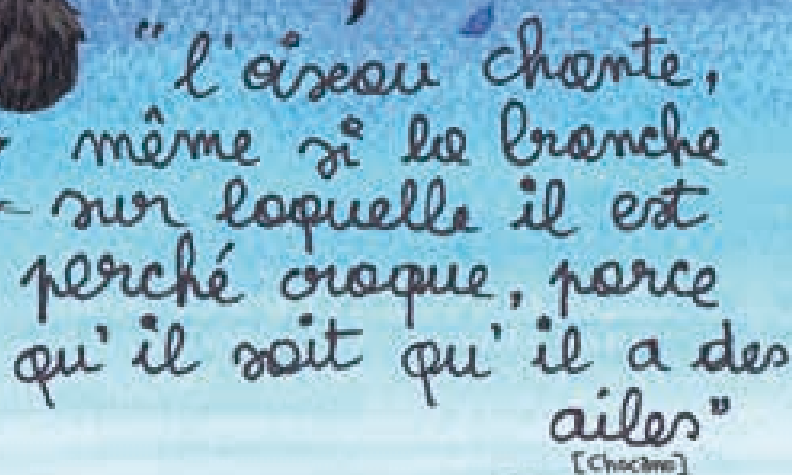 "l'oiseau chante,
même si la branche
sur laquelle il est
perché craque, parce
qu'il sait qu'il a des
ailes"
[Chacano]